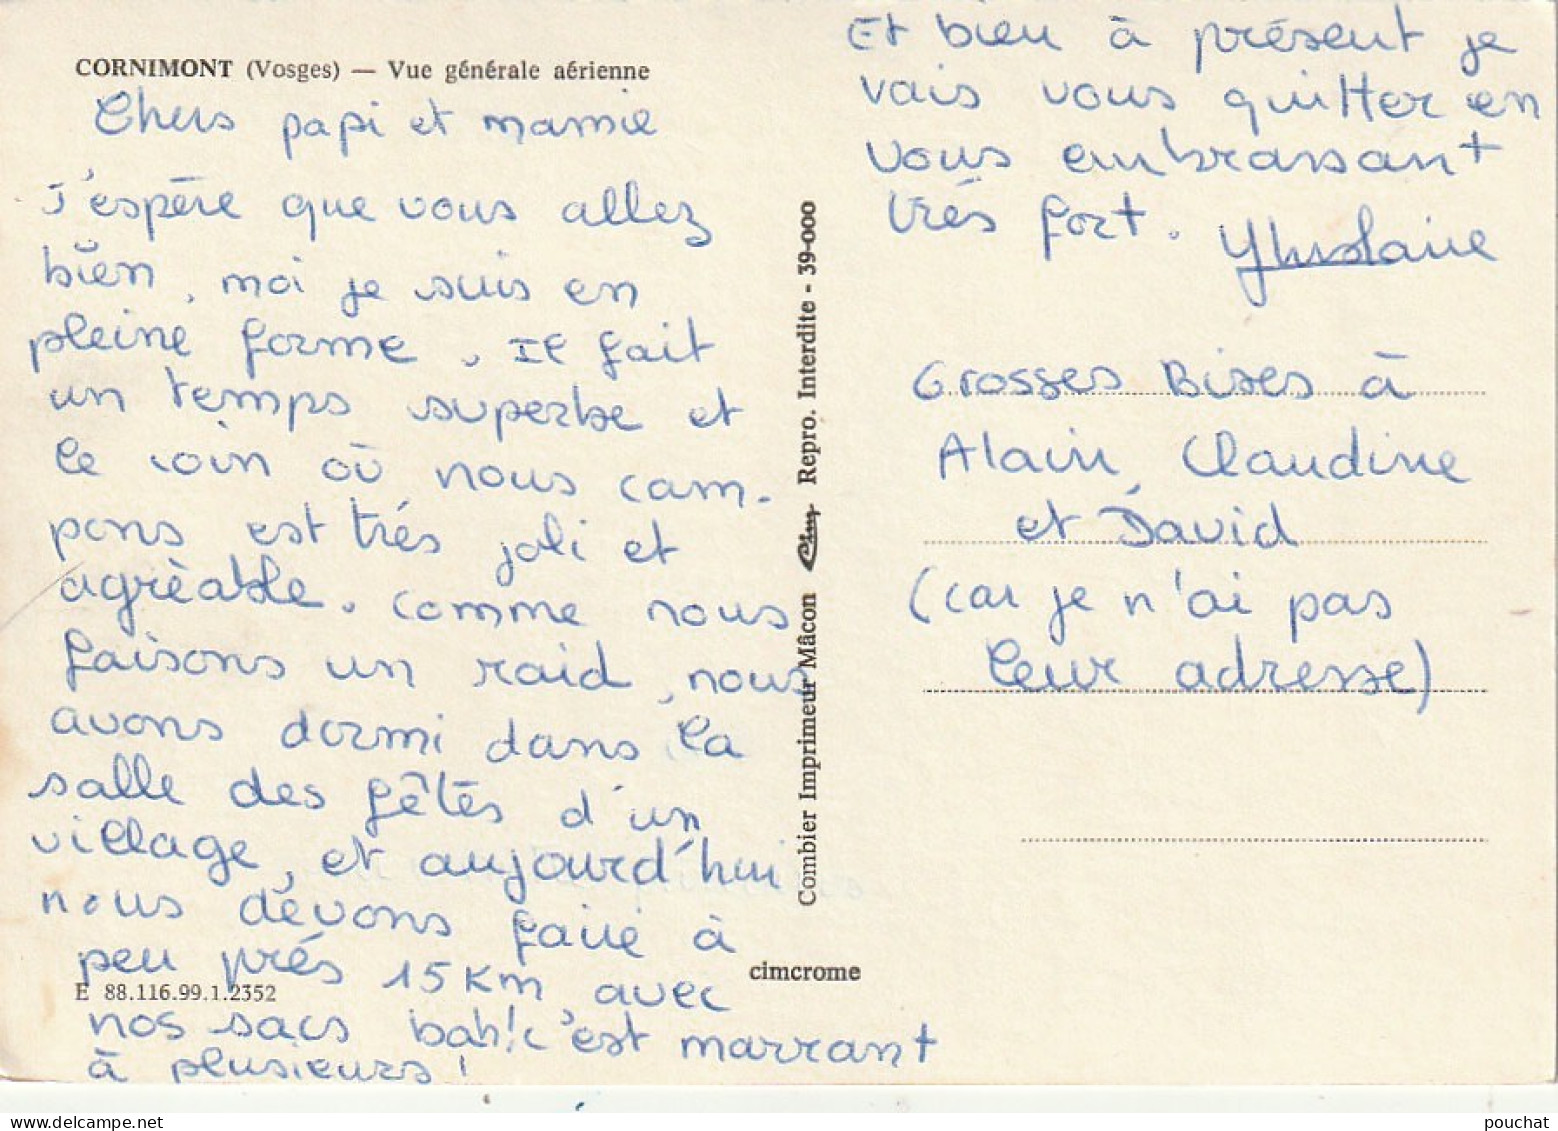 CORNIMONT (Vosges) — Vue générale aérienne
Chers papi et mamie
J'espère que vous allez
bien, moi je suis en
pleine forme. Il fait
un temps superbe et
le coin où nous cam-
pons est trés joli et
agrèable. Comme nous
faisons un raid, nous
avons dormi dans la
salle des fêtes d'un
village, et aujourd'hui
nous devons faire à
peu prés 15 Km avec
nos sacs bah! c'est marrant
à plusieurs!
E 88.116.99.1.2352
Combier Imprimeur Mâcon Cim Repro. Interdite - 39-000
cimcrome
Et bien à présent je
vais vous quitter en
vous embrassant
trés fort. Ghislaine
Grosses Bises à
Alain, Claudine
et David
(car je n'ai pas
leur adresse)
pouchat
www.delcampe.net